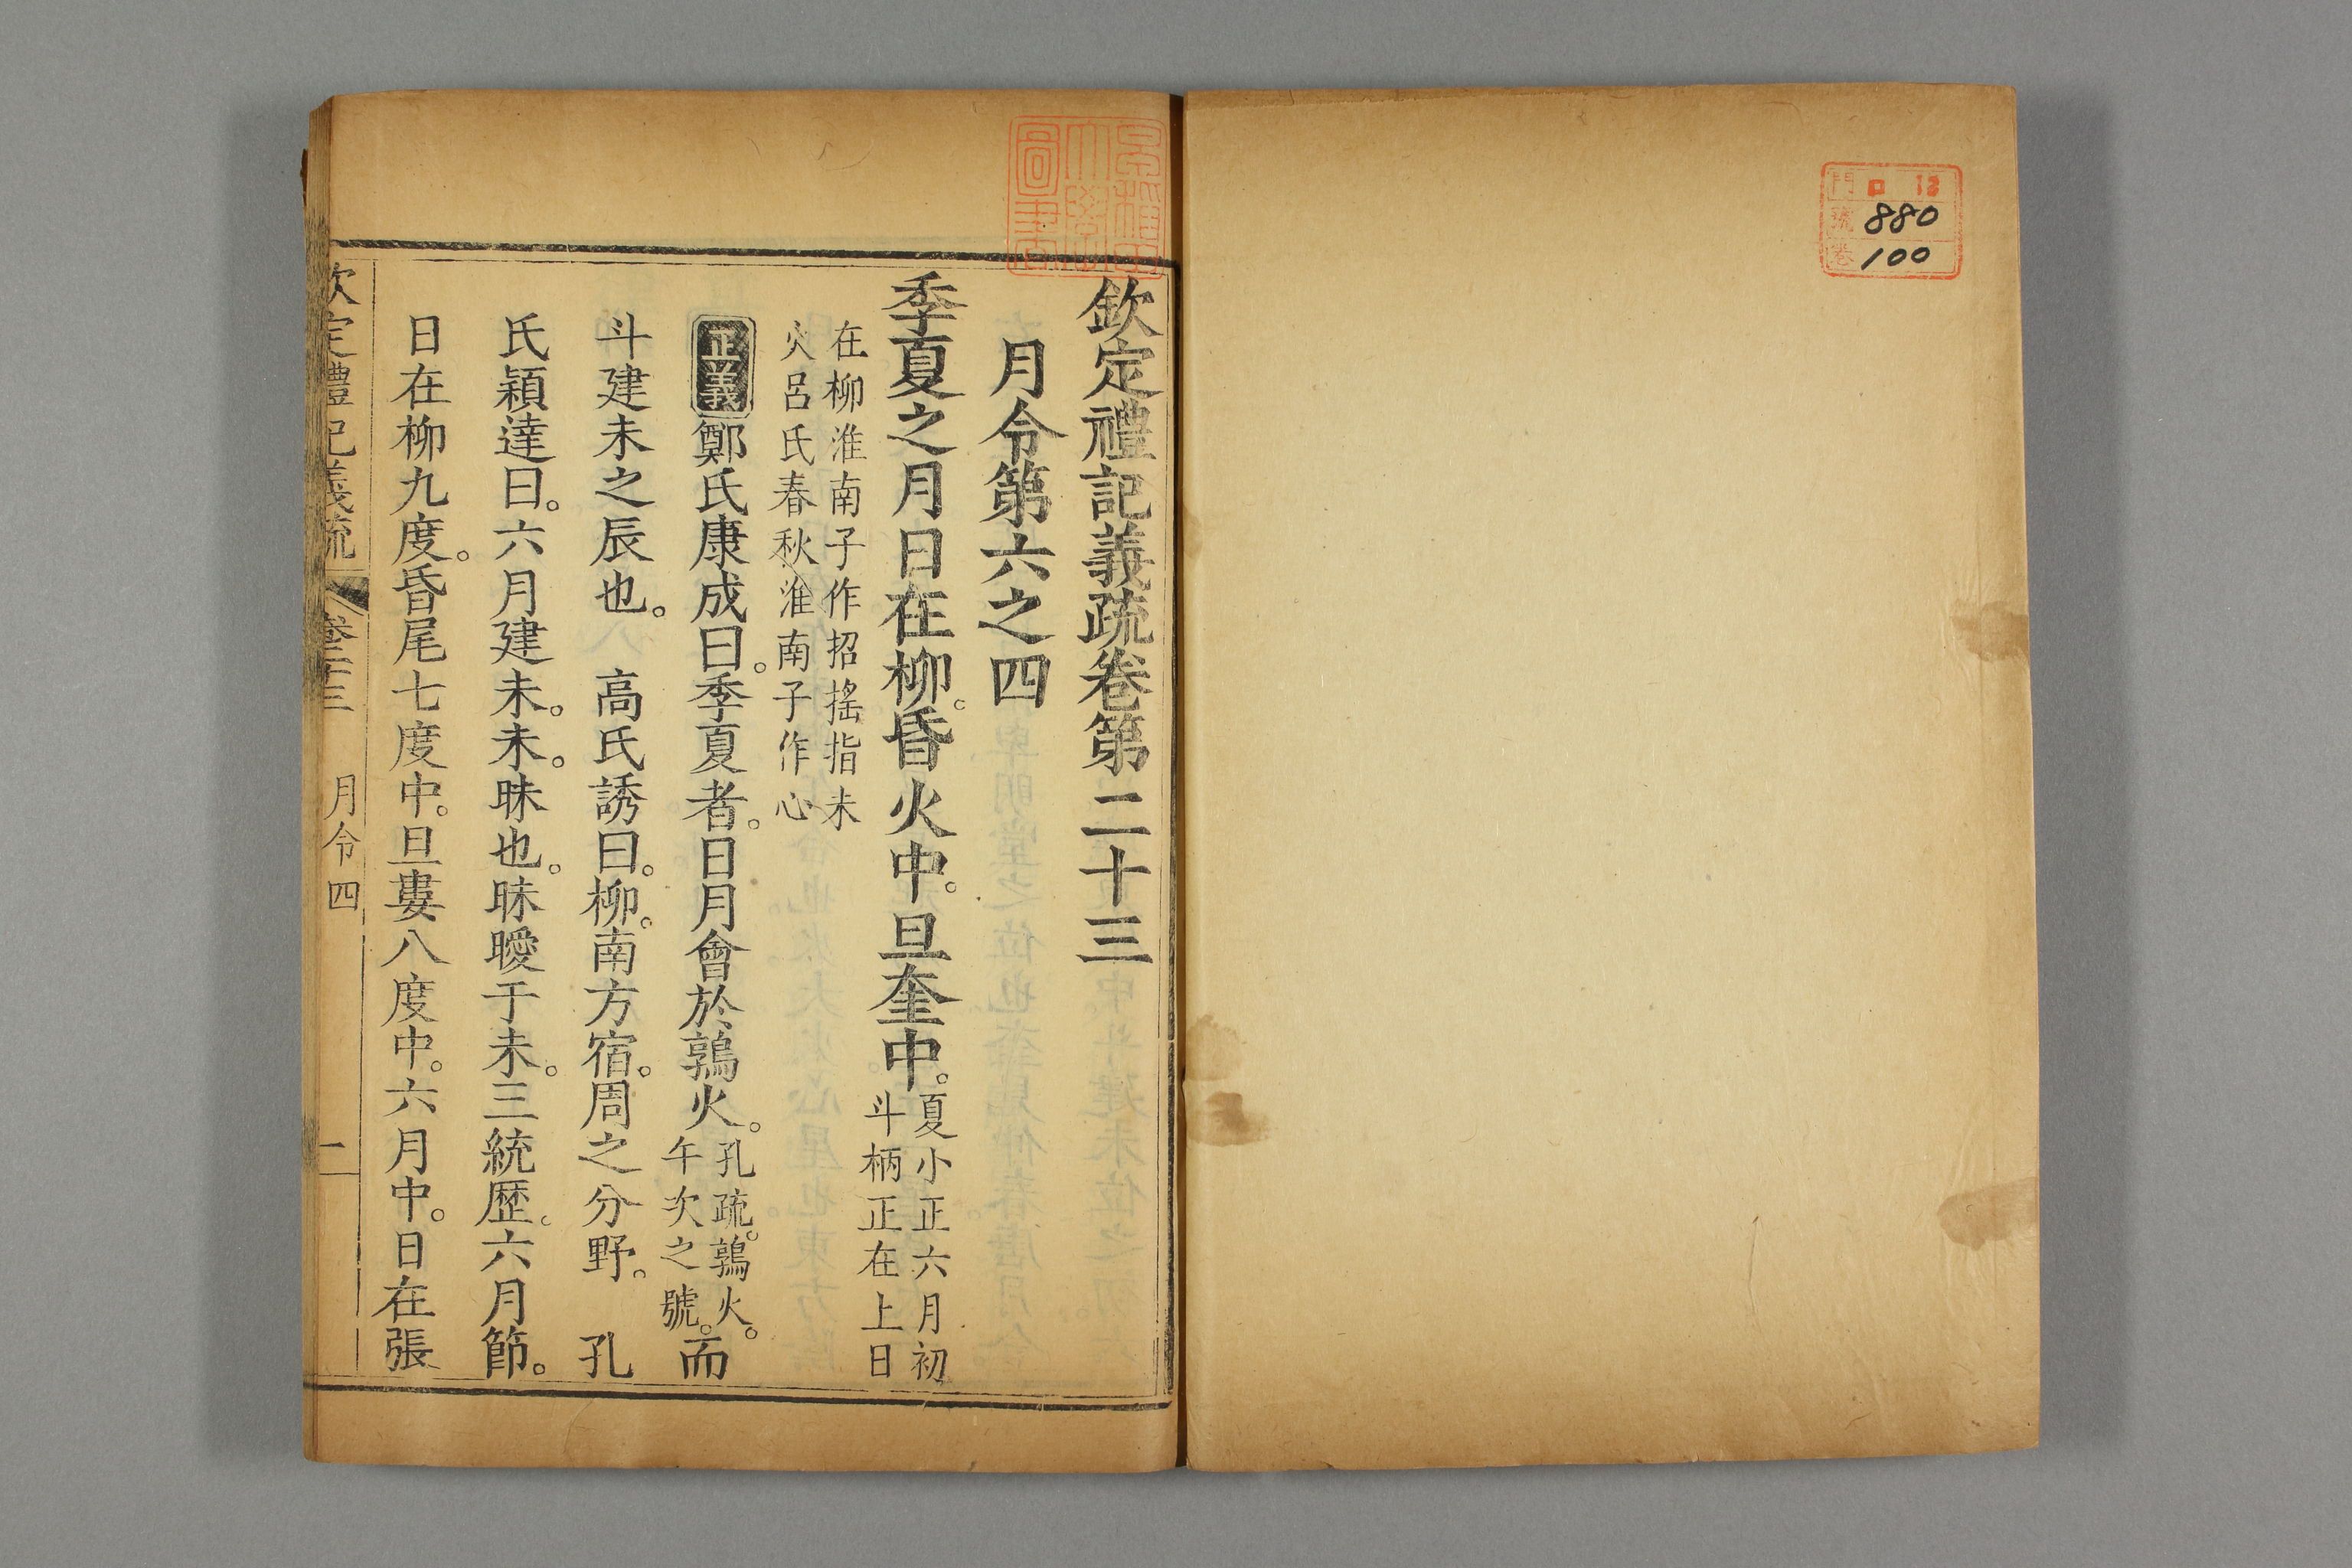 門 ロ 12
號 880
卷 100
早稲田
大學
圖書
欽定禮記義疏卷第二十三
月令第六之四
季夏之月日在柳。昏火中。旦奎中。
夏小正六月初
斗柄正在上日
在柳淮南子作招搖指未
火呂氏春秋淮南子作心
正義鄭氏康成曰。季夏者。日月會於鶉火。
孔疏。鶉火。
午次之號。
而
斗建未之辰也。 高氏誘曰。柳。南方宿。周之分野。 孔
氏穎達曰。六月建未。未。昧也。昧曖于未。三統歷。六月節。
日在柳九度。昏尾七度中。旦婁八度中。六月中。日在張
欽定禮記義疏 卷二十三 月令四 二